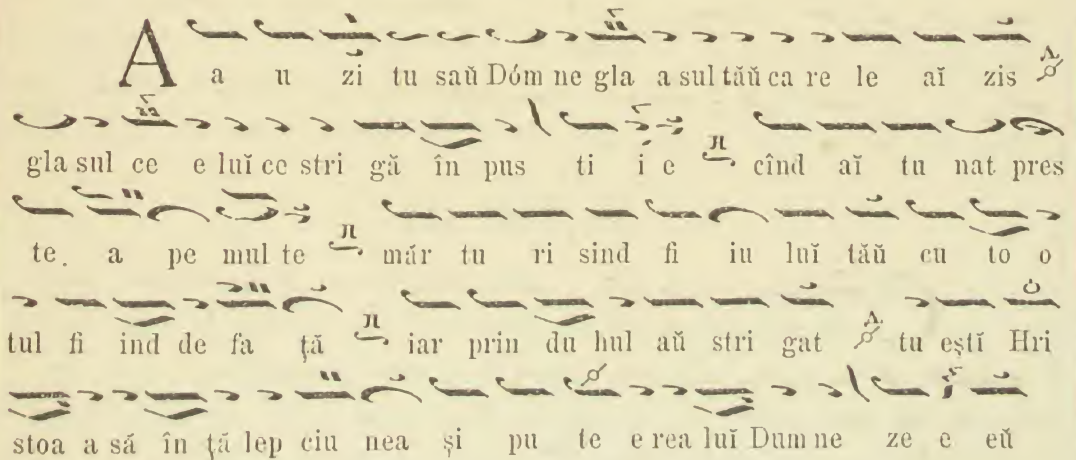 A a u zi tu saŭ Dóm ne gla a sul tăŭ ca re le aĭ zis
gla sul ce e luĭ ce stri gă în pus ti i e cînd aĭ tu nat pres
te. a pe mul te măr tu ri sind fi iu luĭ tăŭ cu to o
tul fi ind de fa ţă iar prin du hul aŭ stri gat tu eştĭ Hri
stoa a să în ţă lep ciu nea şi pu te e rea luĭ Dum ne ze e eŭ